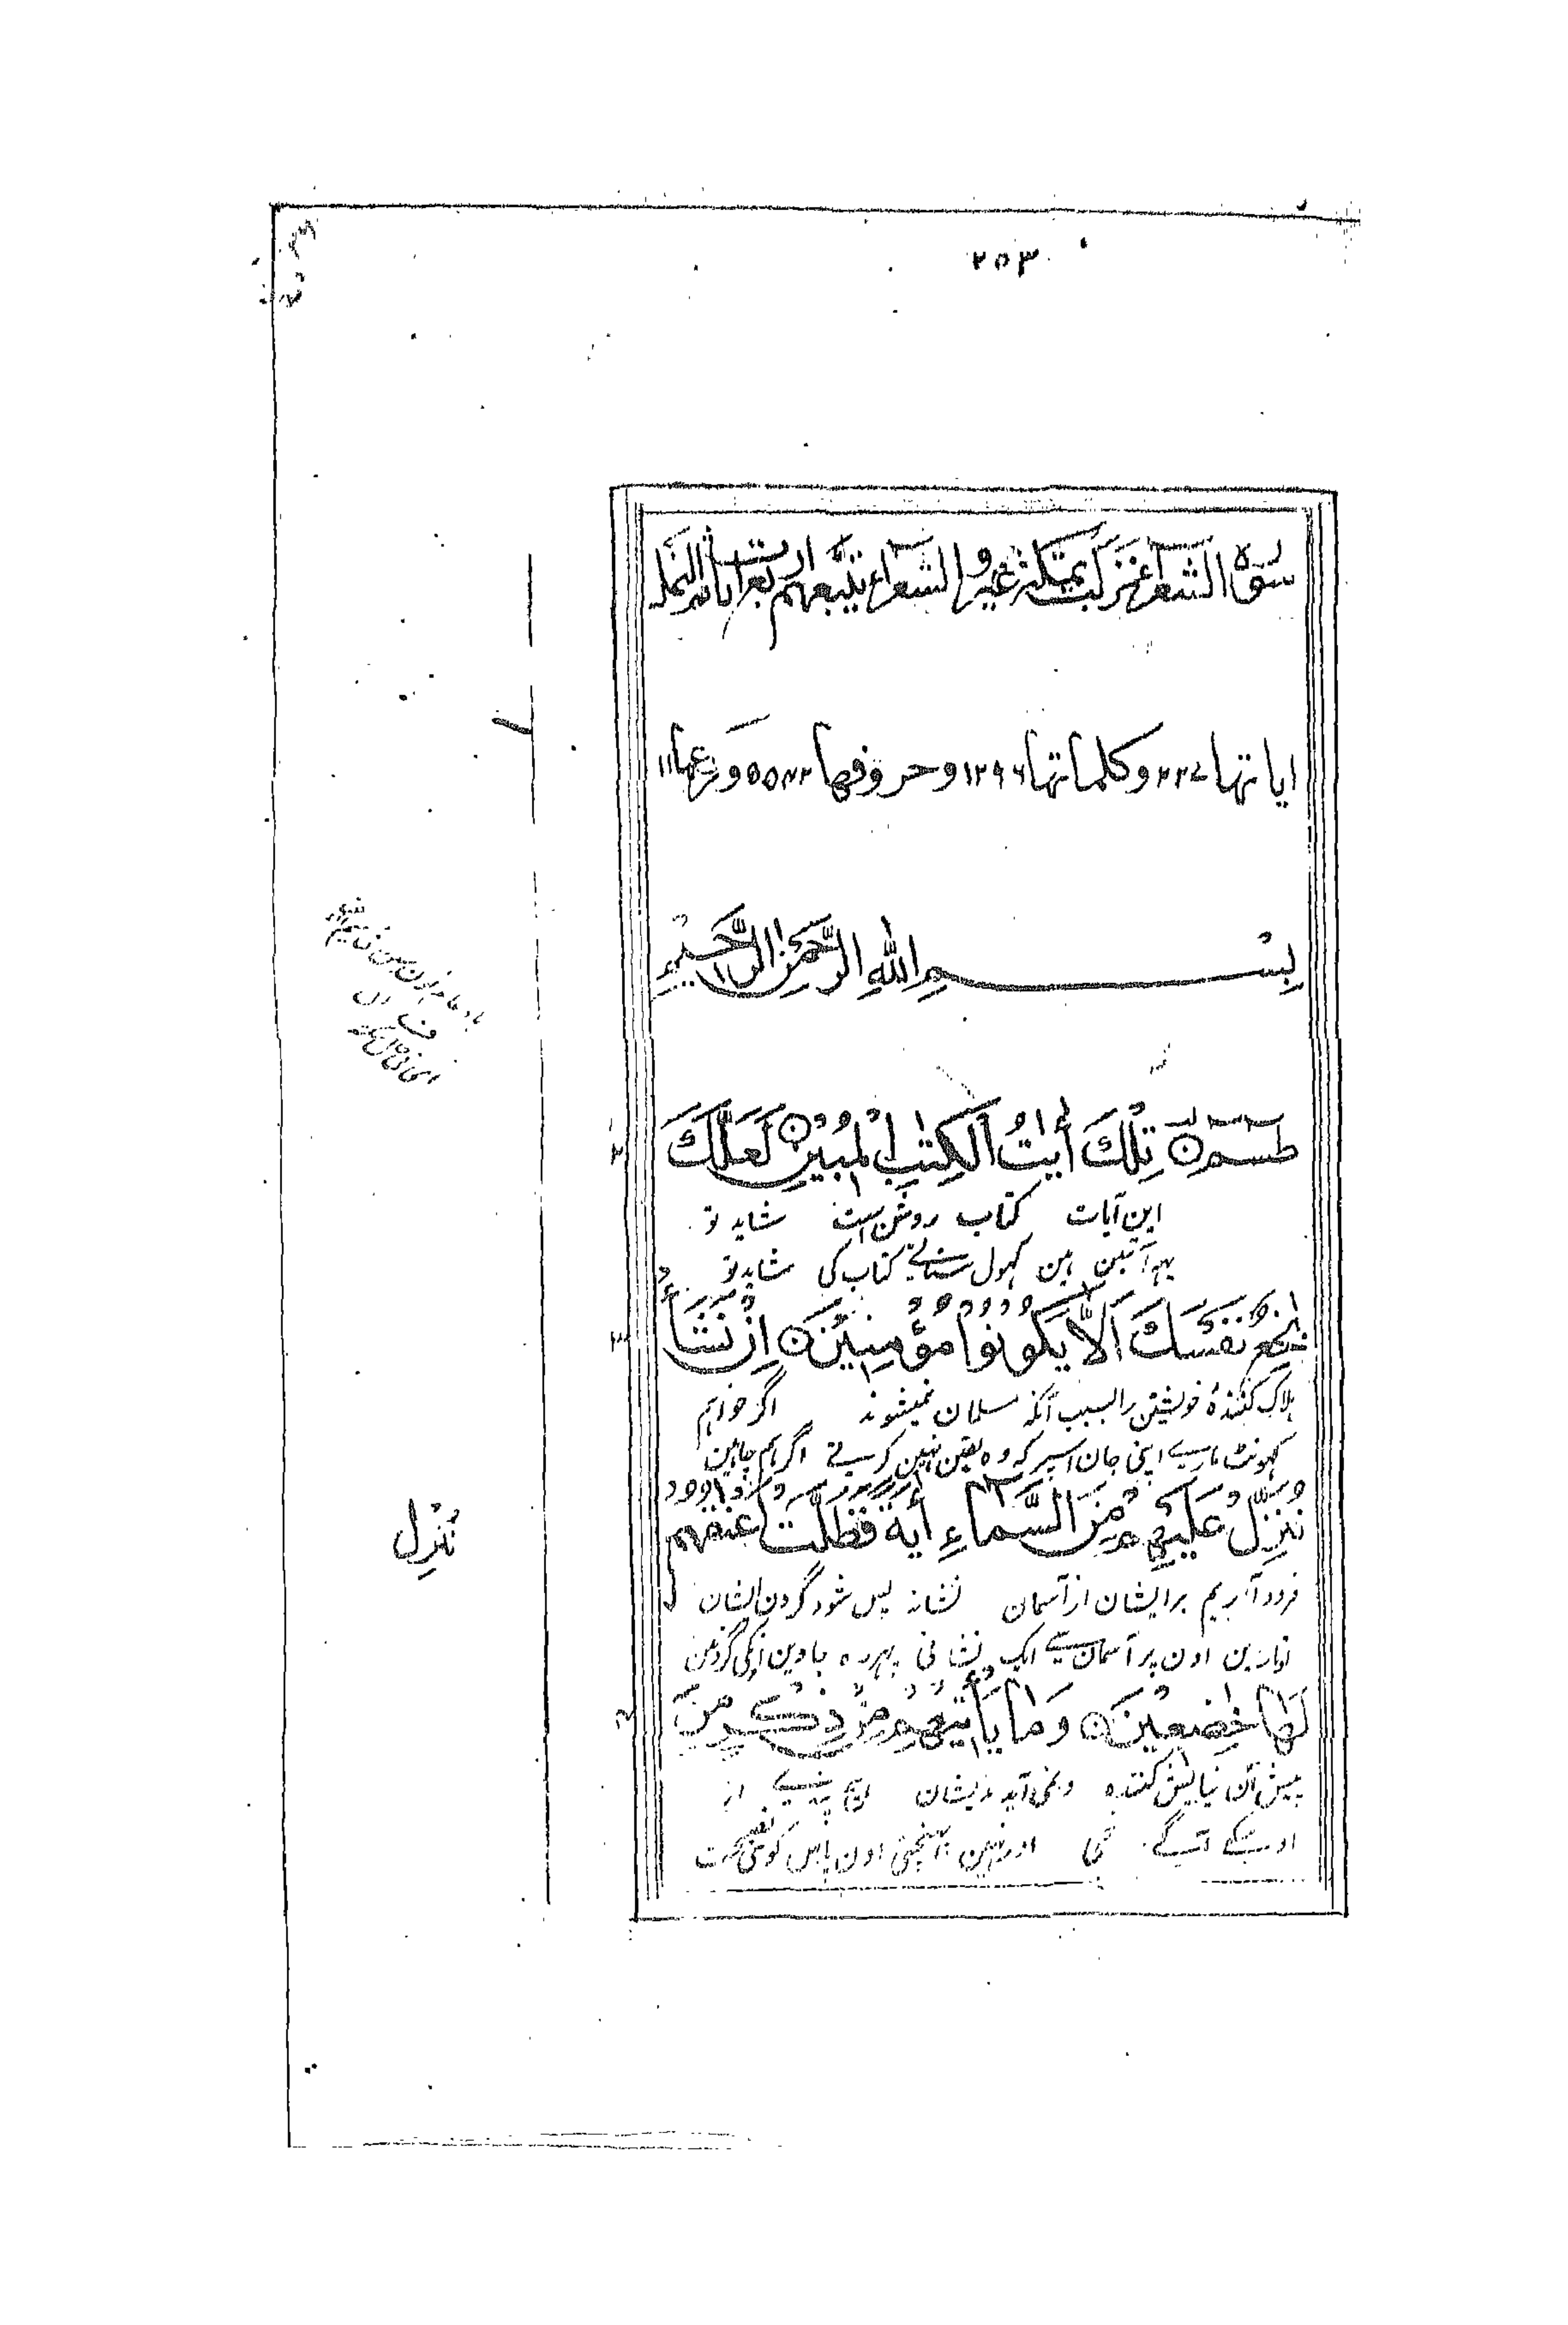 ۲۵۳
سورة الشعراء نزلت بمكة غير والشعراء يتبعهم
ایاتها ۲۲۷ وكلماتها ۱۲۹۶ وحروفها ۵۵۷۲ وركوعها ۱۱
بِسْمِ اللهِ الرَّحْمٰنِ الرَّحِيْمِ
طٰسٓمّٓ تِلْكَ أٰيٰتُ الْكِتٰبِ الْمُبِيْنِ لَعَلَّكَ
این آیات کتاب روشن است شاید تو
یہہ آیتین ہین کہول سناتے کتاب کی شاید تو
بٰخِعٌ نَفْسَكَ اَلَّا يَكُوْنُوْا مُؤْمِنِيْنَ اِنْ نَشَأْ
ہلاک کنندۂ خویشتن را بسبب آنکہ مسلمان نمیشوند اگر خواہیم
کہونٹ مارے اپنی جان اسپر کہ وہ یقین نہین کرتے اگر ہم چاہین
نُنَزِّلْ عَلَيْهِمْ مِنَ السَّمَاءِ أٰيَةً فَظَلَّتْ اَعْنَاقُهُمْ
نُنْزِل
فرود آریم بر ایشان از آسمان نشانہ پس شود گردن ایشان
اوتارین اون پر آسمان سے ایک نشانی پہر رہ جاوین انکی گردنین
لَهَا خٰضِعِيْنَ وَمَا يَأْتِيْهِمْ مِنْ ذِكْرٍ مِنَ
پیش آن نیایش کنندہ و نمی آید بدیشان ہیچ پندے از
اوسکے آگے اور نہین پہنچتی اون پاس کوئی نصیحت